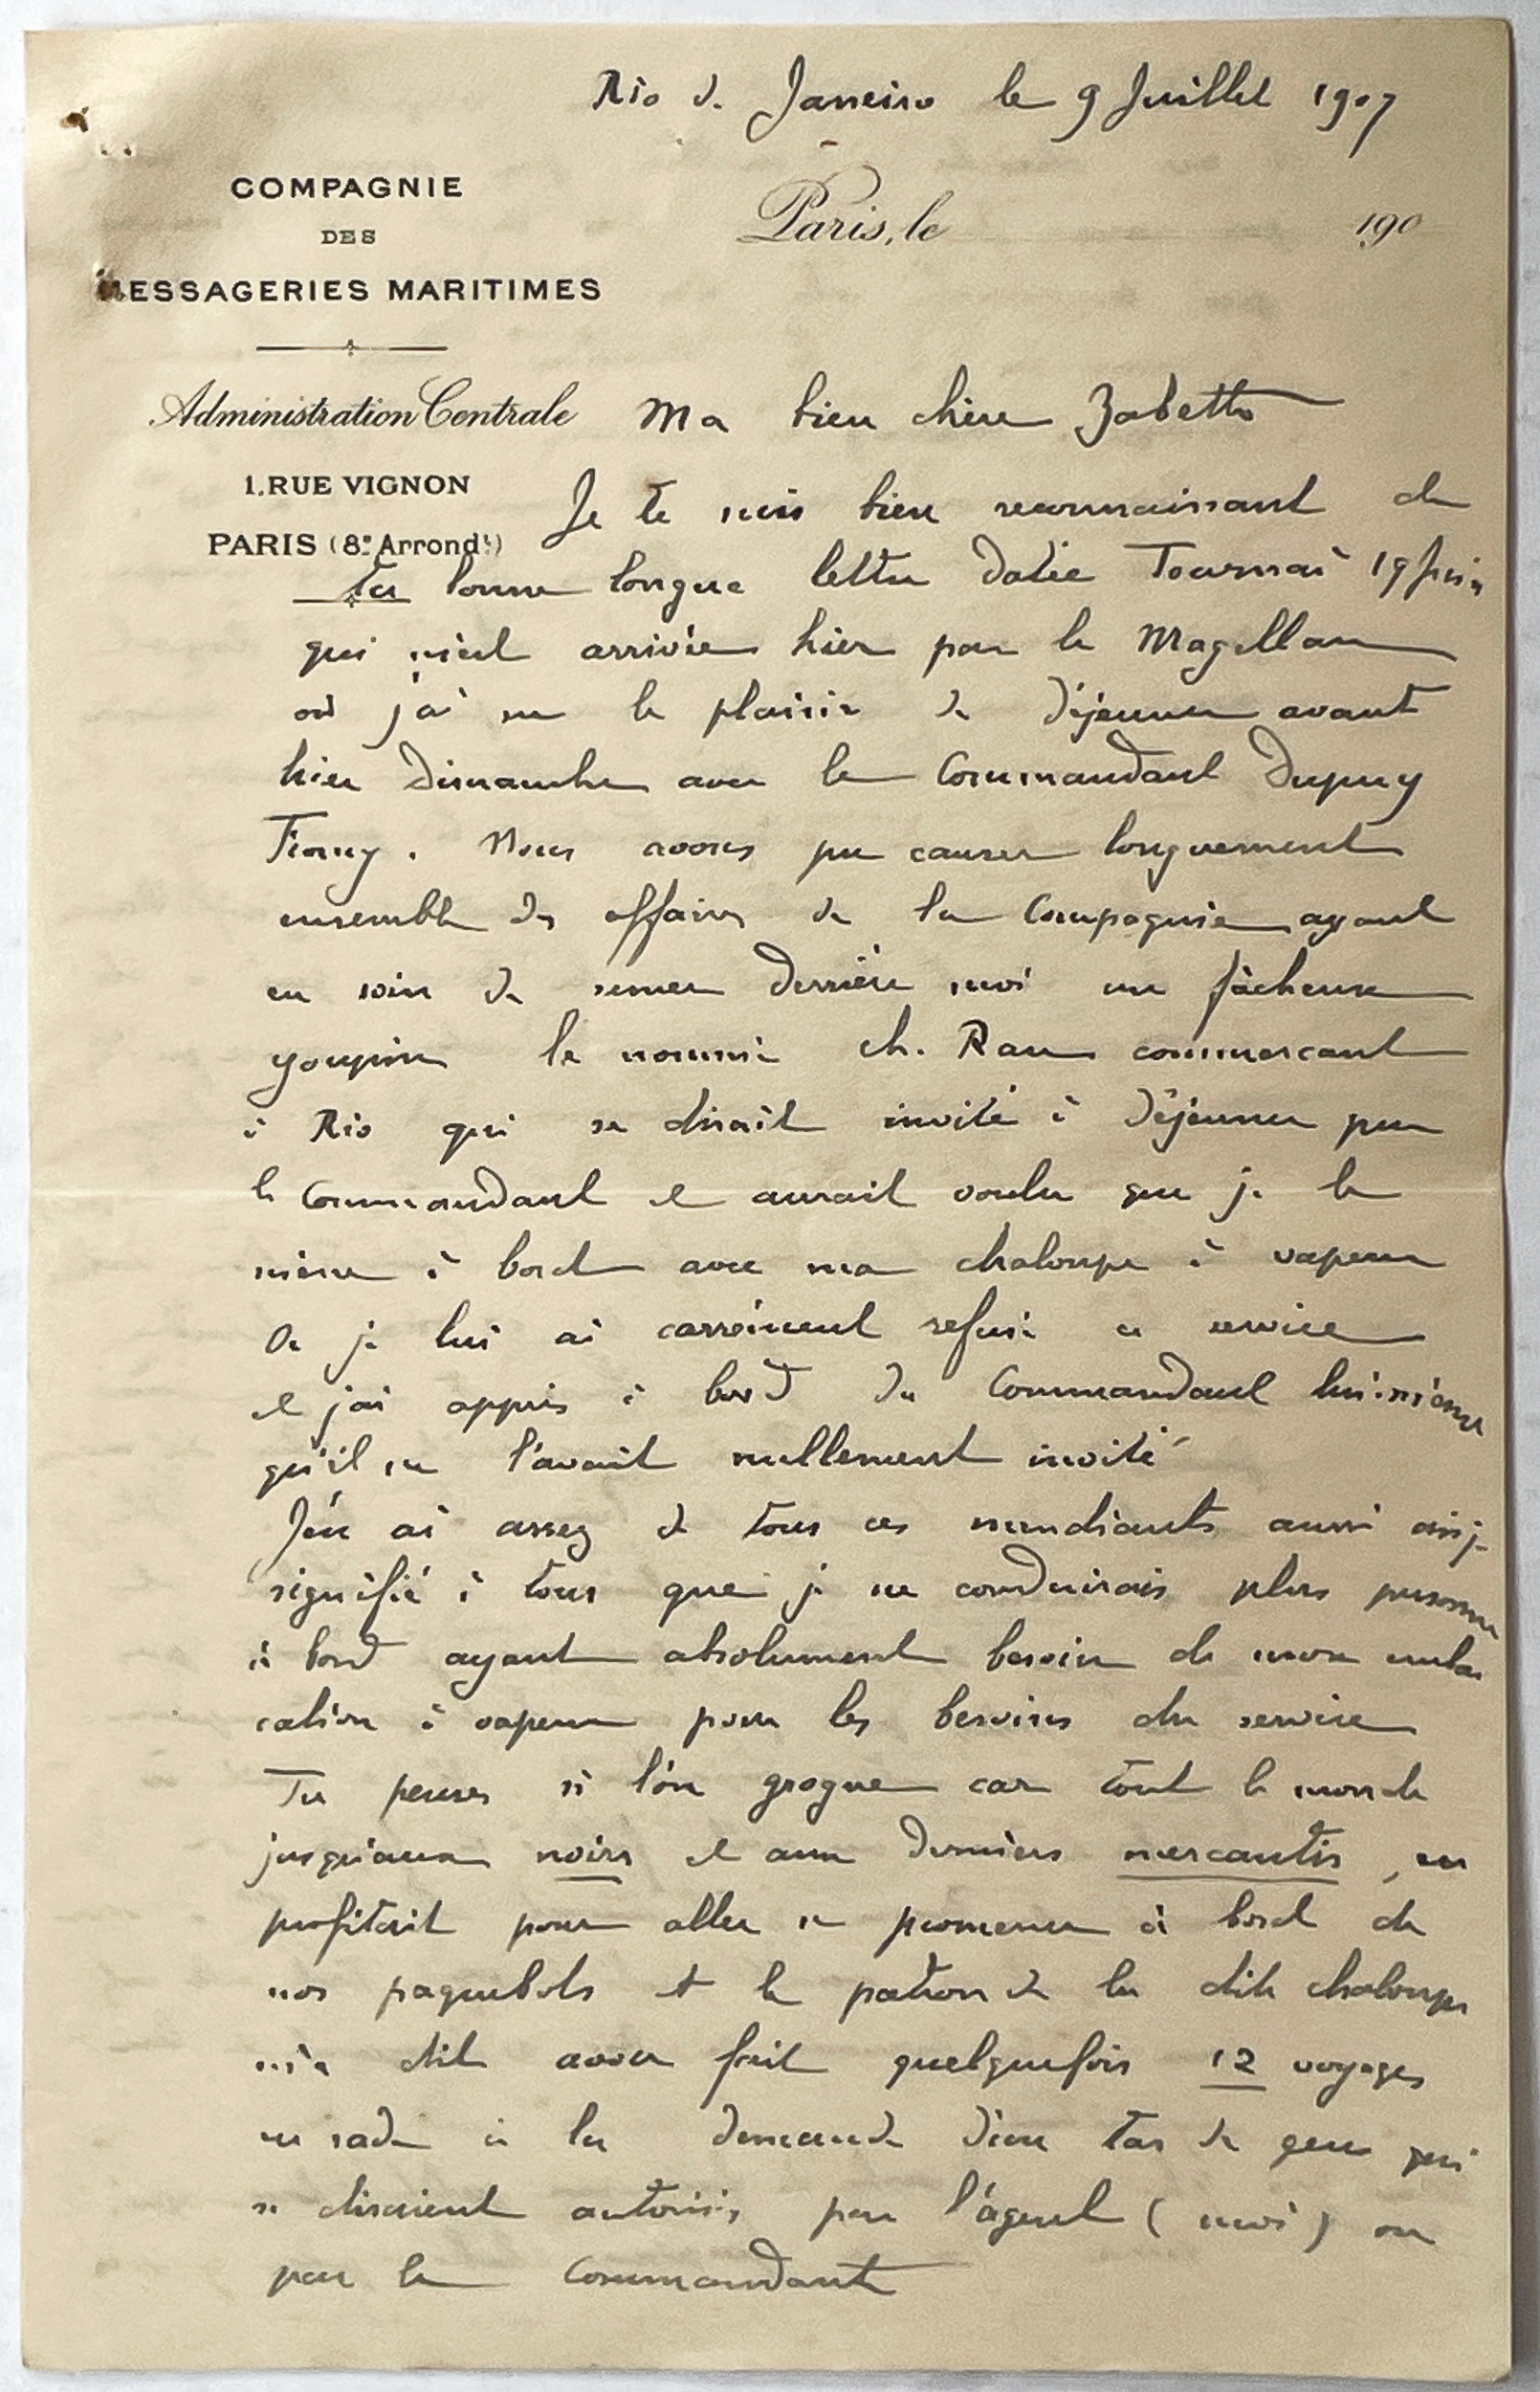 Rio de Janeiro le 9 Juillet 1907
COMPAGNIE
DES
MESSAGERIES MARITIMES
Paris, le 190
Administration Centrale
1. RUE VIGNON
PARIS (8e Arrondt)
Ma bien chère Zabette
Je te suis bien reconnaissant de
ta bonne longue lettre datée Tournai 19 Juin
qui m'est arrivée hier par le Magellan
où j'ai eu le plaisir de déjeuner avant
hier Dimanche avec le Commandant Dupuy
Fromy. Nous avons pu causer longuement
ensemble des affaires de la Compagnie ayant
eu soin de semer derrière moi un fâcheux
youpin le nommé Ch. Rau commercant
à Rio qui se disait invité à déjeuner par
le Commandant et aurait voulu que je le
mène à bord avec ma chaloupe à vapeur
Or je lui ai carrément refusé ce service
et j'ai appris à bord du Commandant lui-même
qu'il ne l'avait nullement invité
J'en ai assez de tous ces mendiants aussi ai-je
signifié à tous que je ne conduirais plus personne
à bord ayant absolument besoin de mon embar
cation à vapeur pour les besoins du service
Tu penses si l'on grogne car tout le monde
jusqu'aux noirs et aux derniers mercantis, en
profitait pour aller se promener à bord de
nos paquebots et le patron de la dite chaloupe
m'a dit avoir fait quelquefois 12 voyages
en rade à la demande d'un tas de gens qui
se disaient autorisés par l'agent (moi) ou
par le Commandant